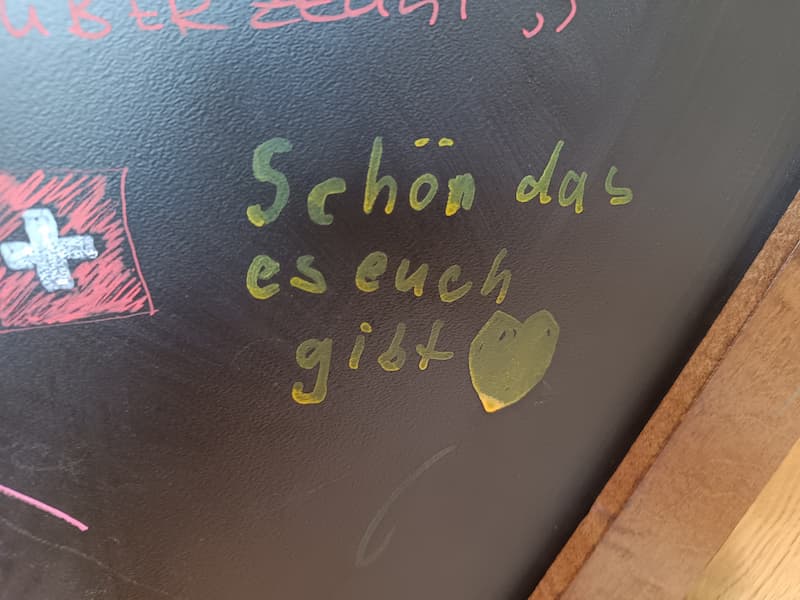 ÜBERZEUGT ,,
Schön das
es euch
gibt